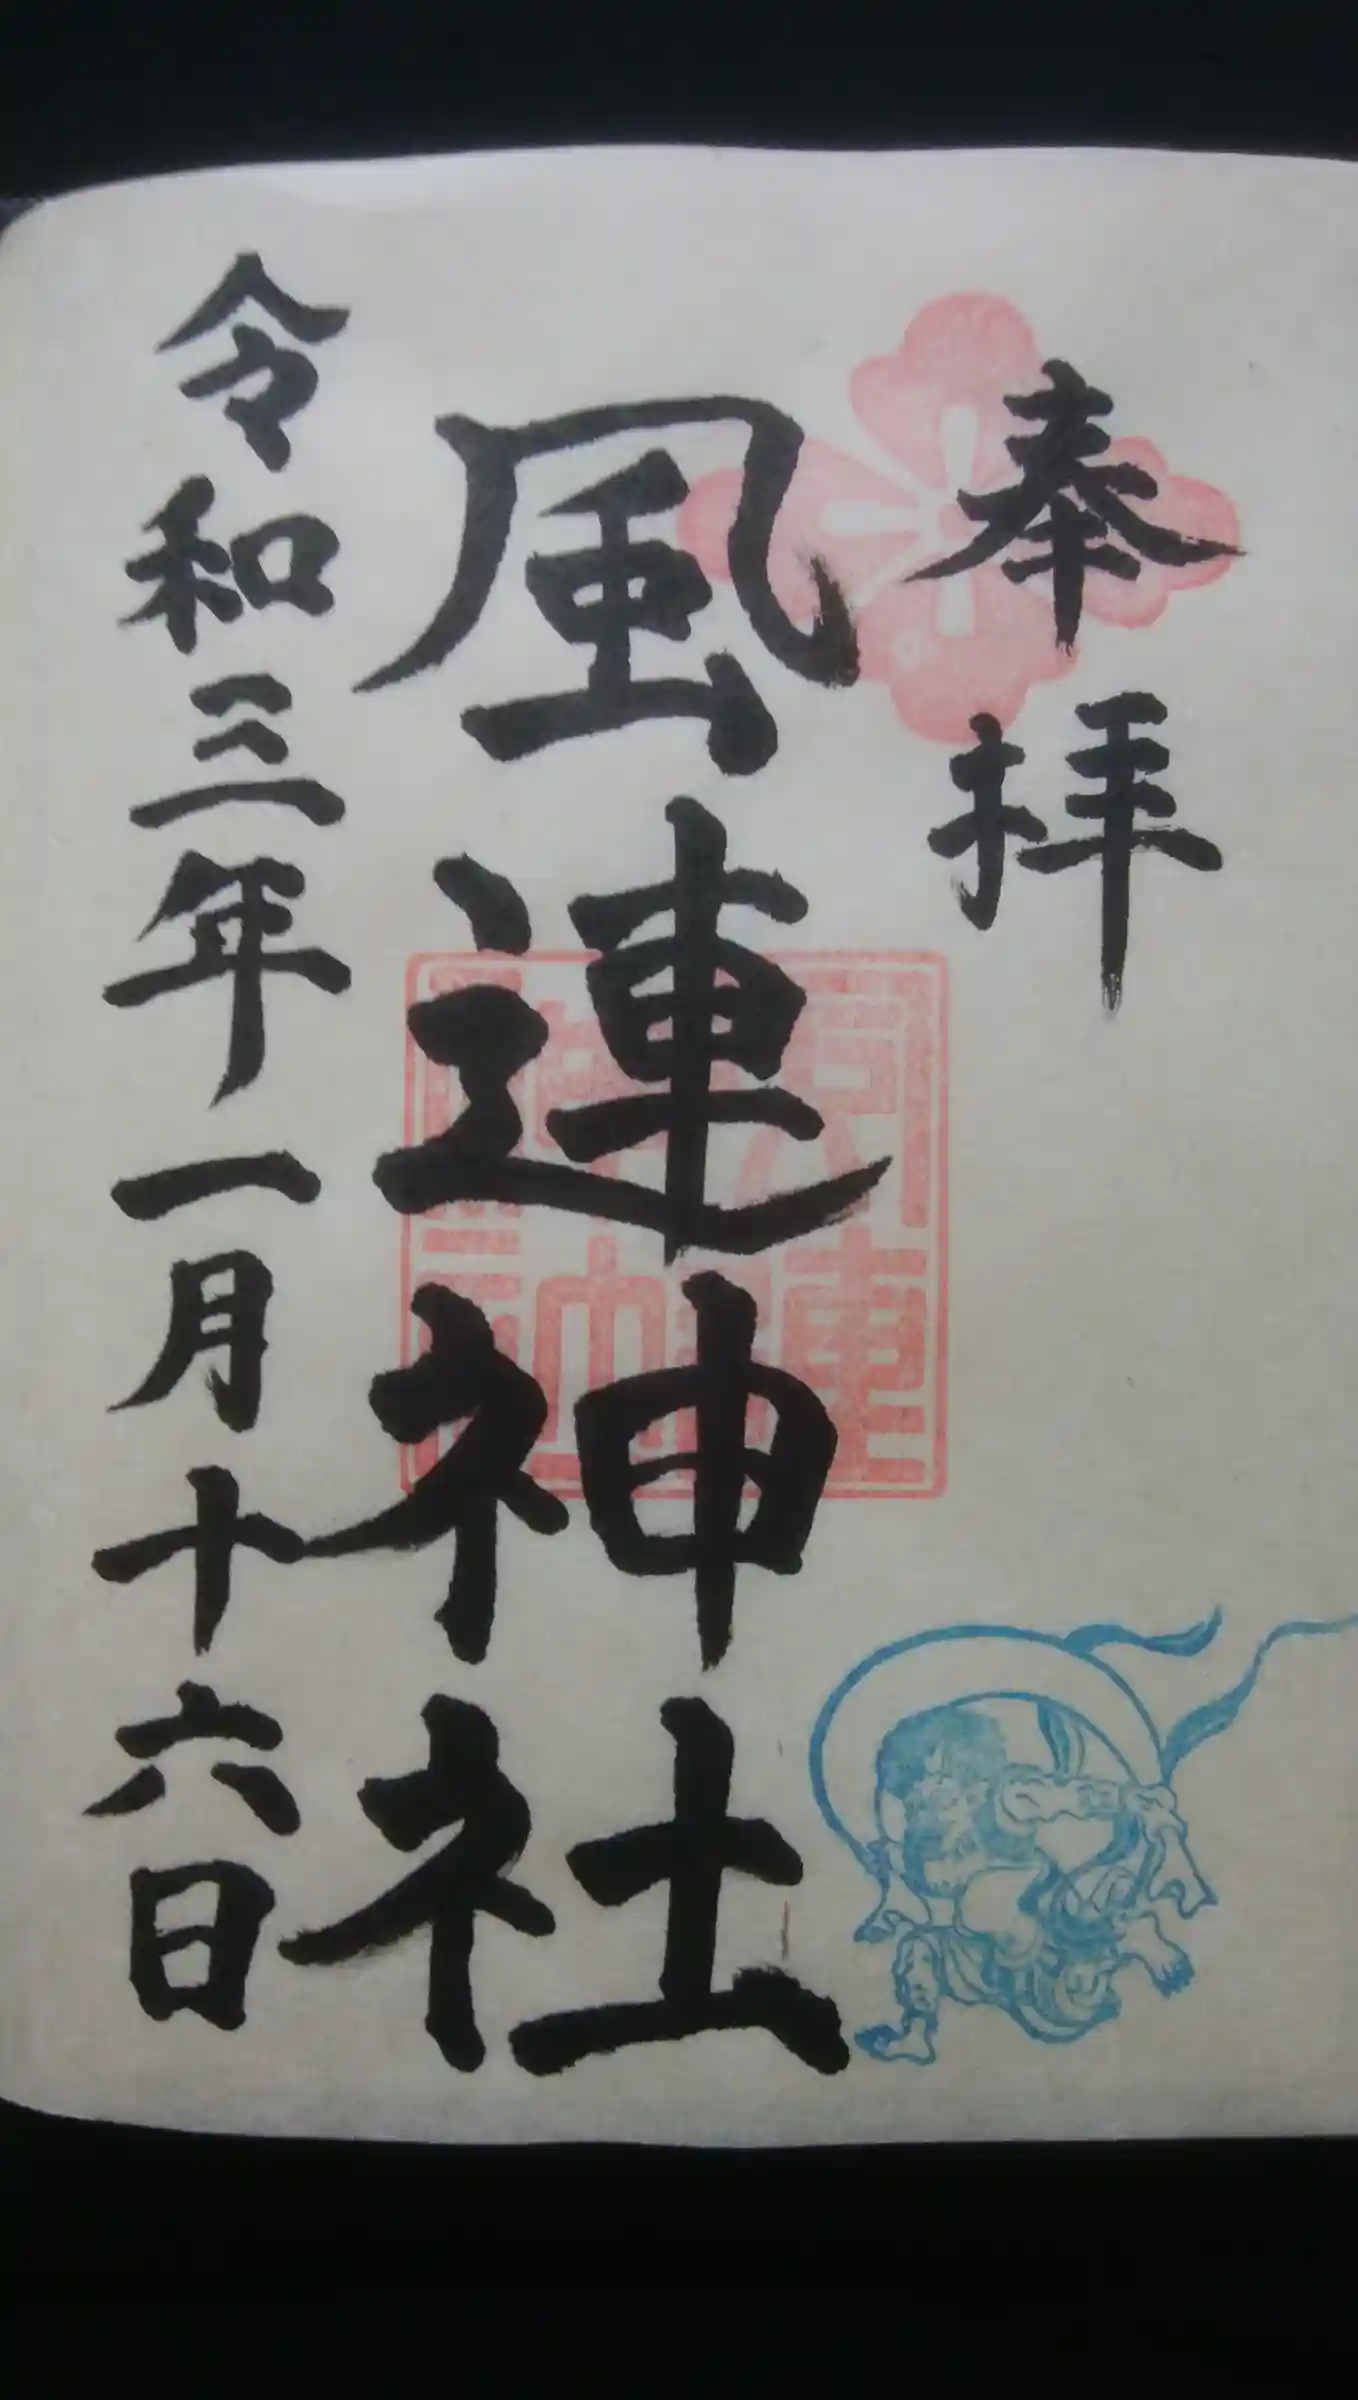 奉拝
風連神社
風連神社
令和三年一月十六日